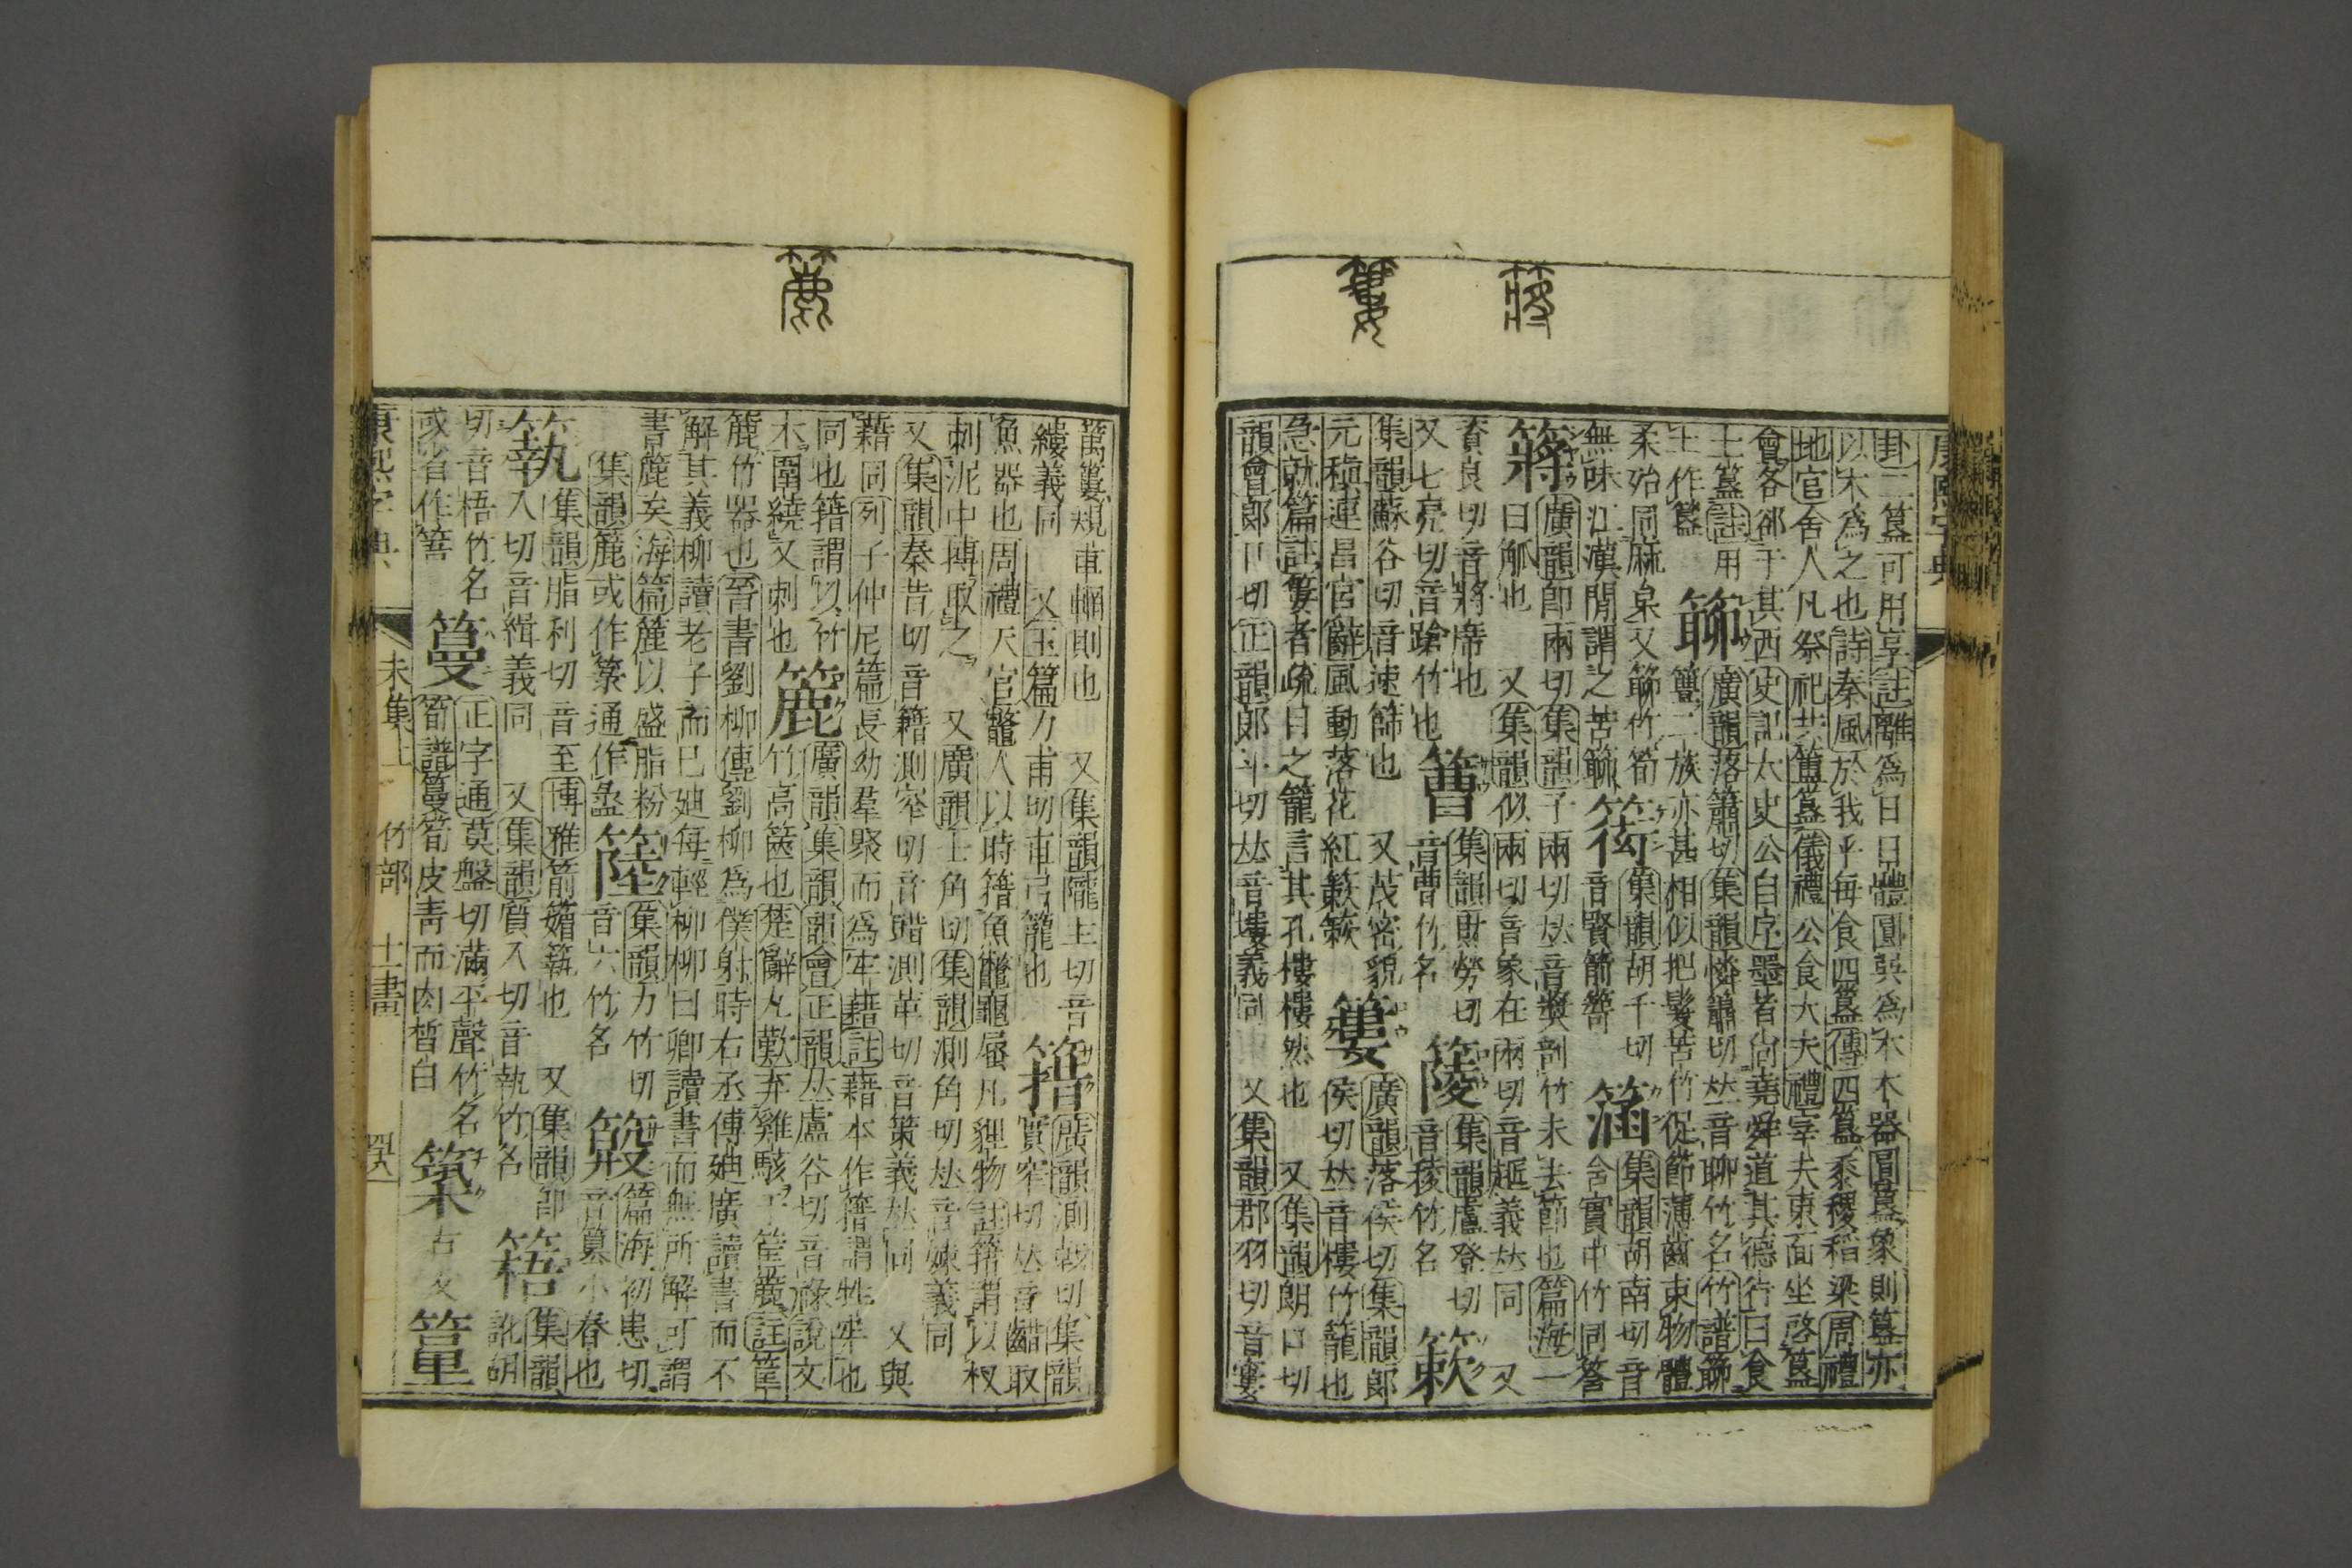 康熙字典
卦二簋可用享註離爲日日體圓巽爲木木器圓簋象則簋亦
以木爲之也詩秦風於我乎每食四簋傳四簋黍稷稻粱周禮
地官舍人凡祭祀共簠簋儀禮公食大夫禮宰夫東面坐啓簋
會各郤于其西史記太史公自序墨者尚堯舜道其德行曰食
土簋註用 廣韻落蕭切集韻憐蕭切𠀤音聊竹名竹譜
土作簋 二族亦甚相似杷髮苦竹促節薄齒束物體
柔殆同麻枲又竹筍 集韻胡千切 集韻胡南切音
無味江漢閒謂之苦 音賢箭 舍實中竹同
廣韻卽兩切集韻子兩切𠀤音奬剖竹未去節也篇海一
曰觚也 又集韻似兩切音象在兩切音義𠀤同 又
資良切音將席也 集韻財勞切 集韻盧登切
又七亮切音蹌竹也 音曹竹名 音稜竹名 簌
集韻蘇谷切音速篩也 又茂密貌 廣韻落侯切集韻郎
元稹連昌宮辭風動落花紅簌簌 簍 侯切𠀤音樓竹籠也
急就篇註簍者疏目之籠言其孔樓樓然也 又集韻朗口切
韻會郎口切正韻郎斗切𠀤音塿義同 又集韻郡羽切音寠
簍規車輞則也 又集韻隴主切音
縷義同 又玉篇力甫切車弓籠也 簎 廣韻測戟切集韻
實窄切𠀤音齰取
魚器也周禮天官鼈人以時簎魚鼈龜蜃凡貍物註簎謂以杈
刺泥中搏取之 又廣韻士角切集韻測角切𠀤音娕義同
又集韻秦昔切音籍測窄切音䜺測革切音策義𠀤同 又與
藉同列子仲尼篇長幼羣聚而爲牢藉註藉本作簎謂牲牢也
同也簎謂以竹
木圍繞又刺也 簏 廣韻集韻韻會正韻𠀤盧谷切音祿說文
竹高篋也楚辭九歎弃雞駭于筐簏註筐
簏竹器也晉書劉柳傳劉柳爲僕射時右丞傅迪廣讀書而不
解其義柳讀老子而已迪每輕柳柳曰卿讀書而無所解可謂
書簏矣海篇簏以盛脂粉 集韻力竹切 篇海初患切
集韻簏或作箓通作盝 音六竹名 音篡小舂也
集韻脂利切音至博雅箭也 又集韻卽 集韻
入切音緝義同 又集韻質入切音執竹名 訛胡
切音梧竹名 正字通莫盤切滿平聲竹名 古文
或省作 筍譜筍皮靑而肉皙白
康熙字典 未集上 竹部 十一畫